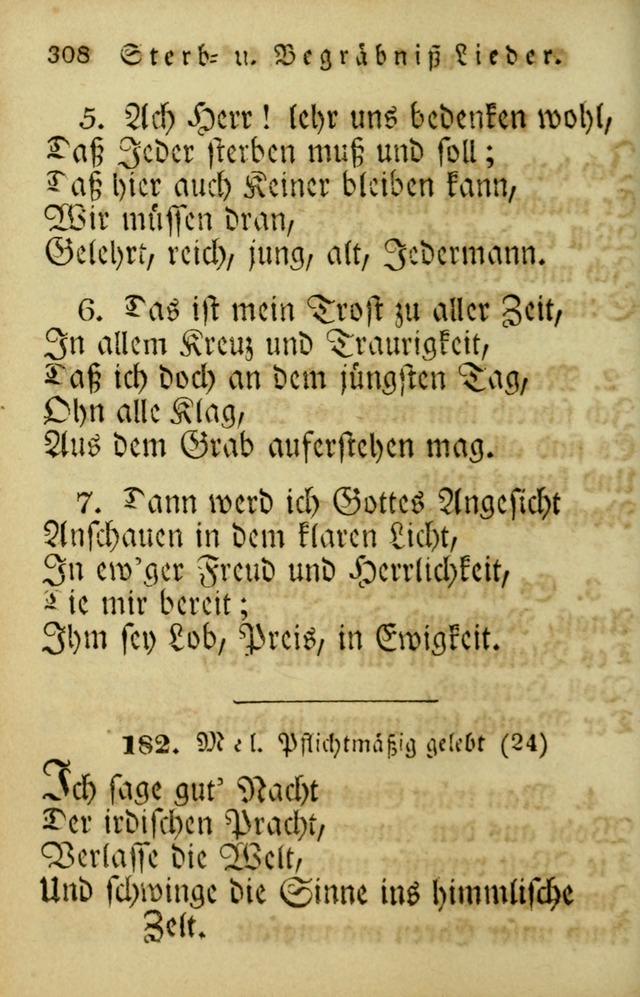 308 Sterb- u. Begräbniß Lieder.
5. Ach Herr! lehr uns bedenken wohl,
Daß Jeder sterben muß und soll;
Daß hier auch Keiner bleiben kann,
Wir müssen dran,
Gelehrt, reich, jung, alt, Jedermann.
6. Das ist mein Trost zu aller Zeit,
In allem Kreuz und Traurigkeit,
Daß ich doch an dem jüngsten Tag,
Ohn alle Klag,
Aus dem Grab auferstehen mag.
7. Dann werd ich Gottes Angesicht
Anschauen in dem klaren Licht,
In ew'ger Freud und Herrlichkeit,
Die mir bereit;
Ihm sey Lob, Preis, in Ewigkeit.
182. Mel. Pflichtmäßig gelebt (24)
Ich sage gut' Nacht
Der irdischen Pracht,
Verlasse die Welt,
Und schwinge die Sinne ins himmlische
Zelt.